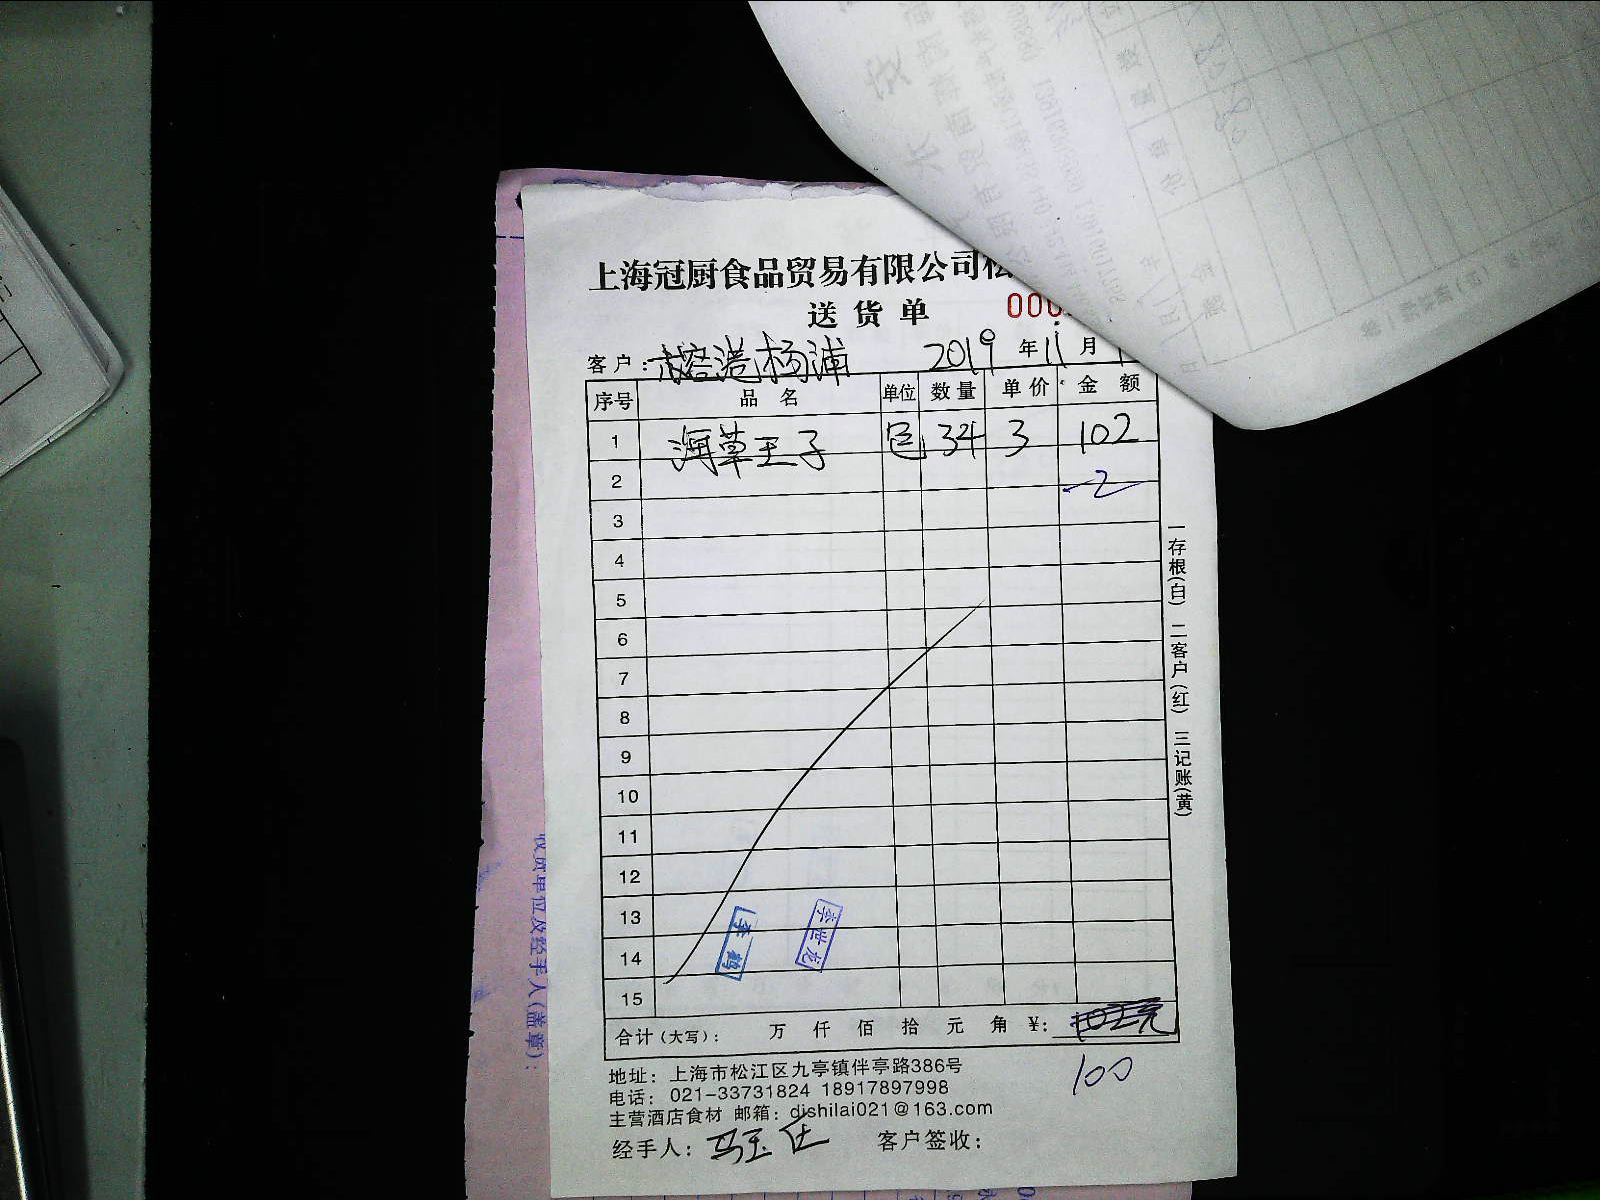 上海冠厨食品贸易有限公司松
送货单 000
客户: 榕港杨浦 2019年11月1
序号 品名 单位 数量 单价 金额
1 海草王子 包 34 3 102
2 -2
3
4
5
6
7
8
9
10
11
12
13
14
15
李鹤 李世龙
合计(大写): 万 仟 佰 拾 元 角 ¥:
100
地址: 上海市松江区九亭镇伴亭路386号
电话: 021-33731824 18917897998
主营酒店食材 邮箱: dishilai021@163.com
经手人: 马玉仕 客户签收:
一存根(白) 二客户(红) 三记账(黄)
收货单位及经手人(盖章):